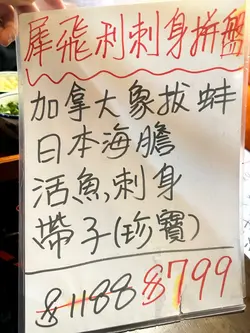 犀飛利刺身拼盤
加拿大象拔蚌
日本海膽
活魚,刺身
帶子(珍寶)
$1188 $799